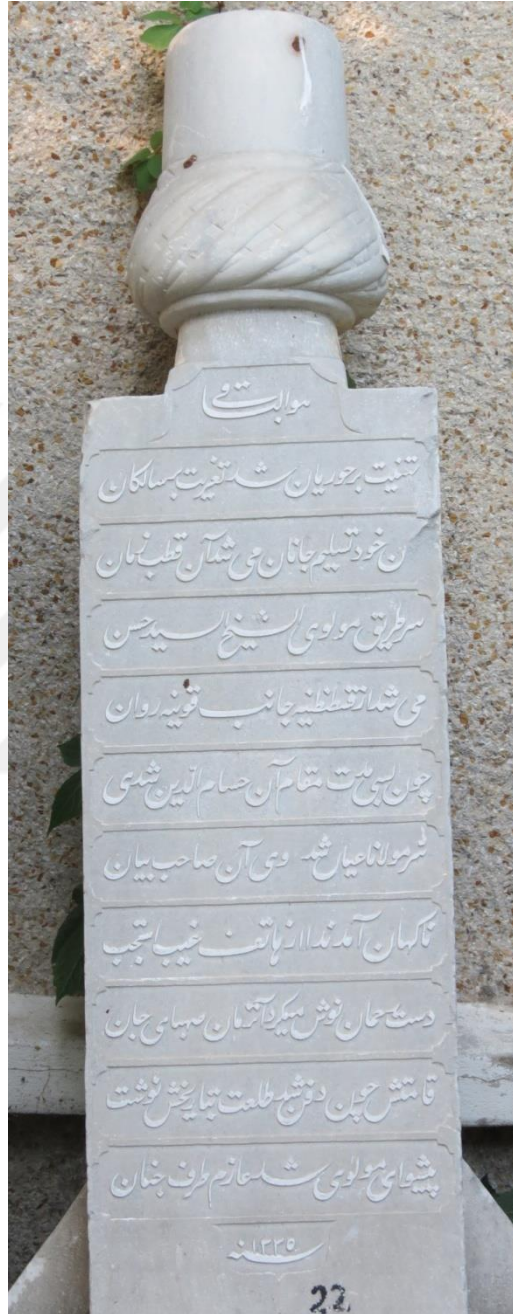 هو الباقی
تهنیت بر حوریان شد تعزیت بر سالکان
من خود تسلیم جانان می شد آن قطب زمان
سر طریق مولوی الشیخ السید حسن
می شد از قسطنطنیه جانب قونیه روان
چون بسی هست مقام آن حسام الدین شدی
سر مولانا عیان شد وی آن صاحب بیان
ناکهان آمد ندا از هاتف غیب
دست جان نوش میکرد آنزمان صهبای جان
قامتش چون دفن شد طلعت بتاریخش نوشت
پیشوای مولوی شد عازم طرف جنان
سنه ١٣٣٥
22